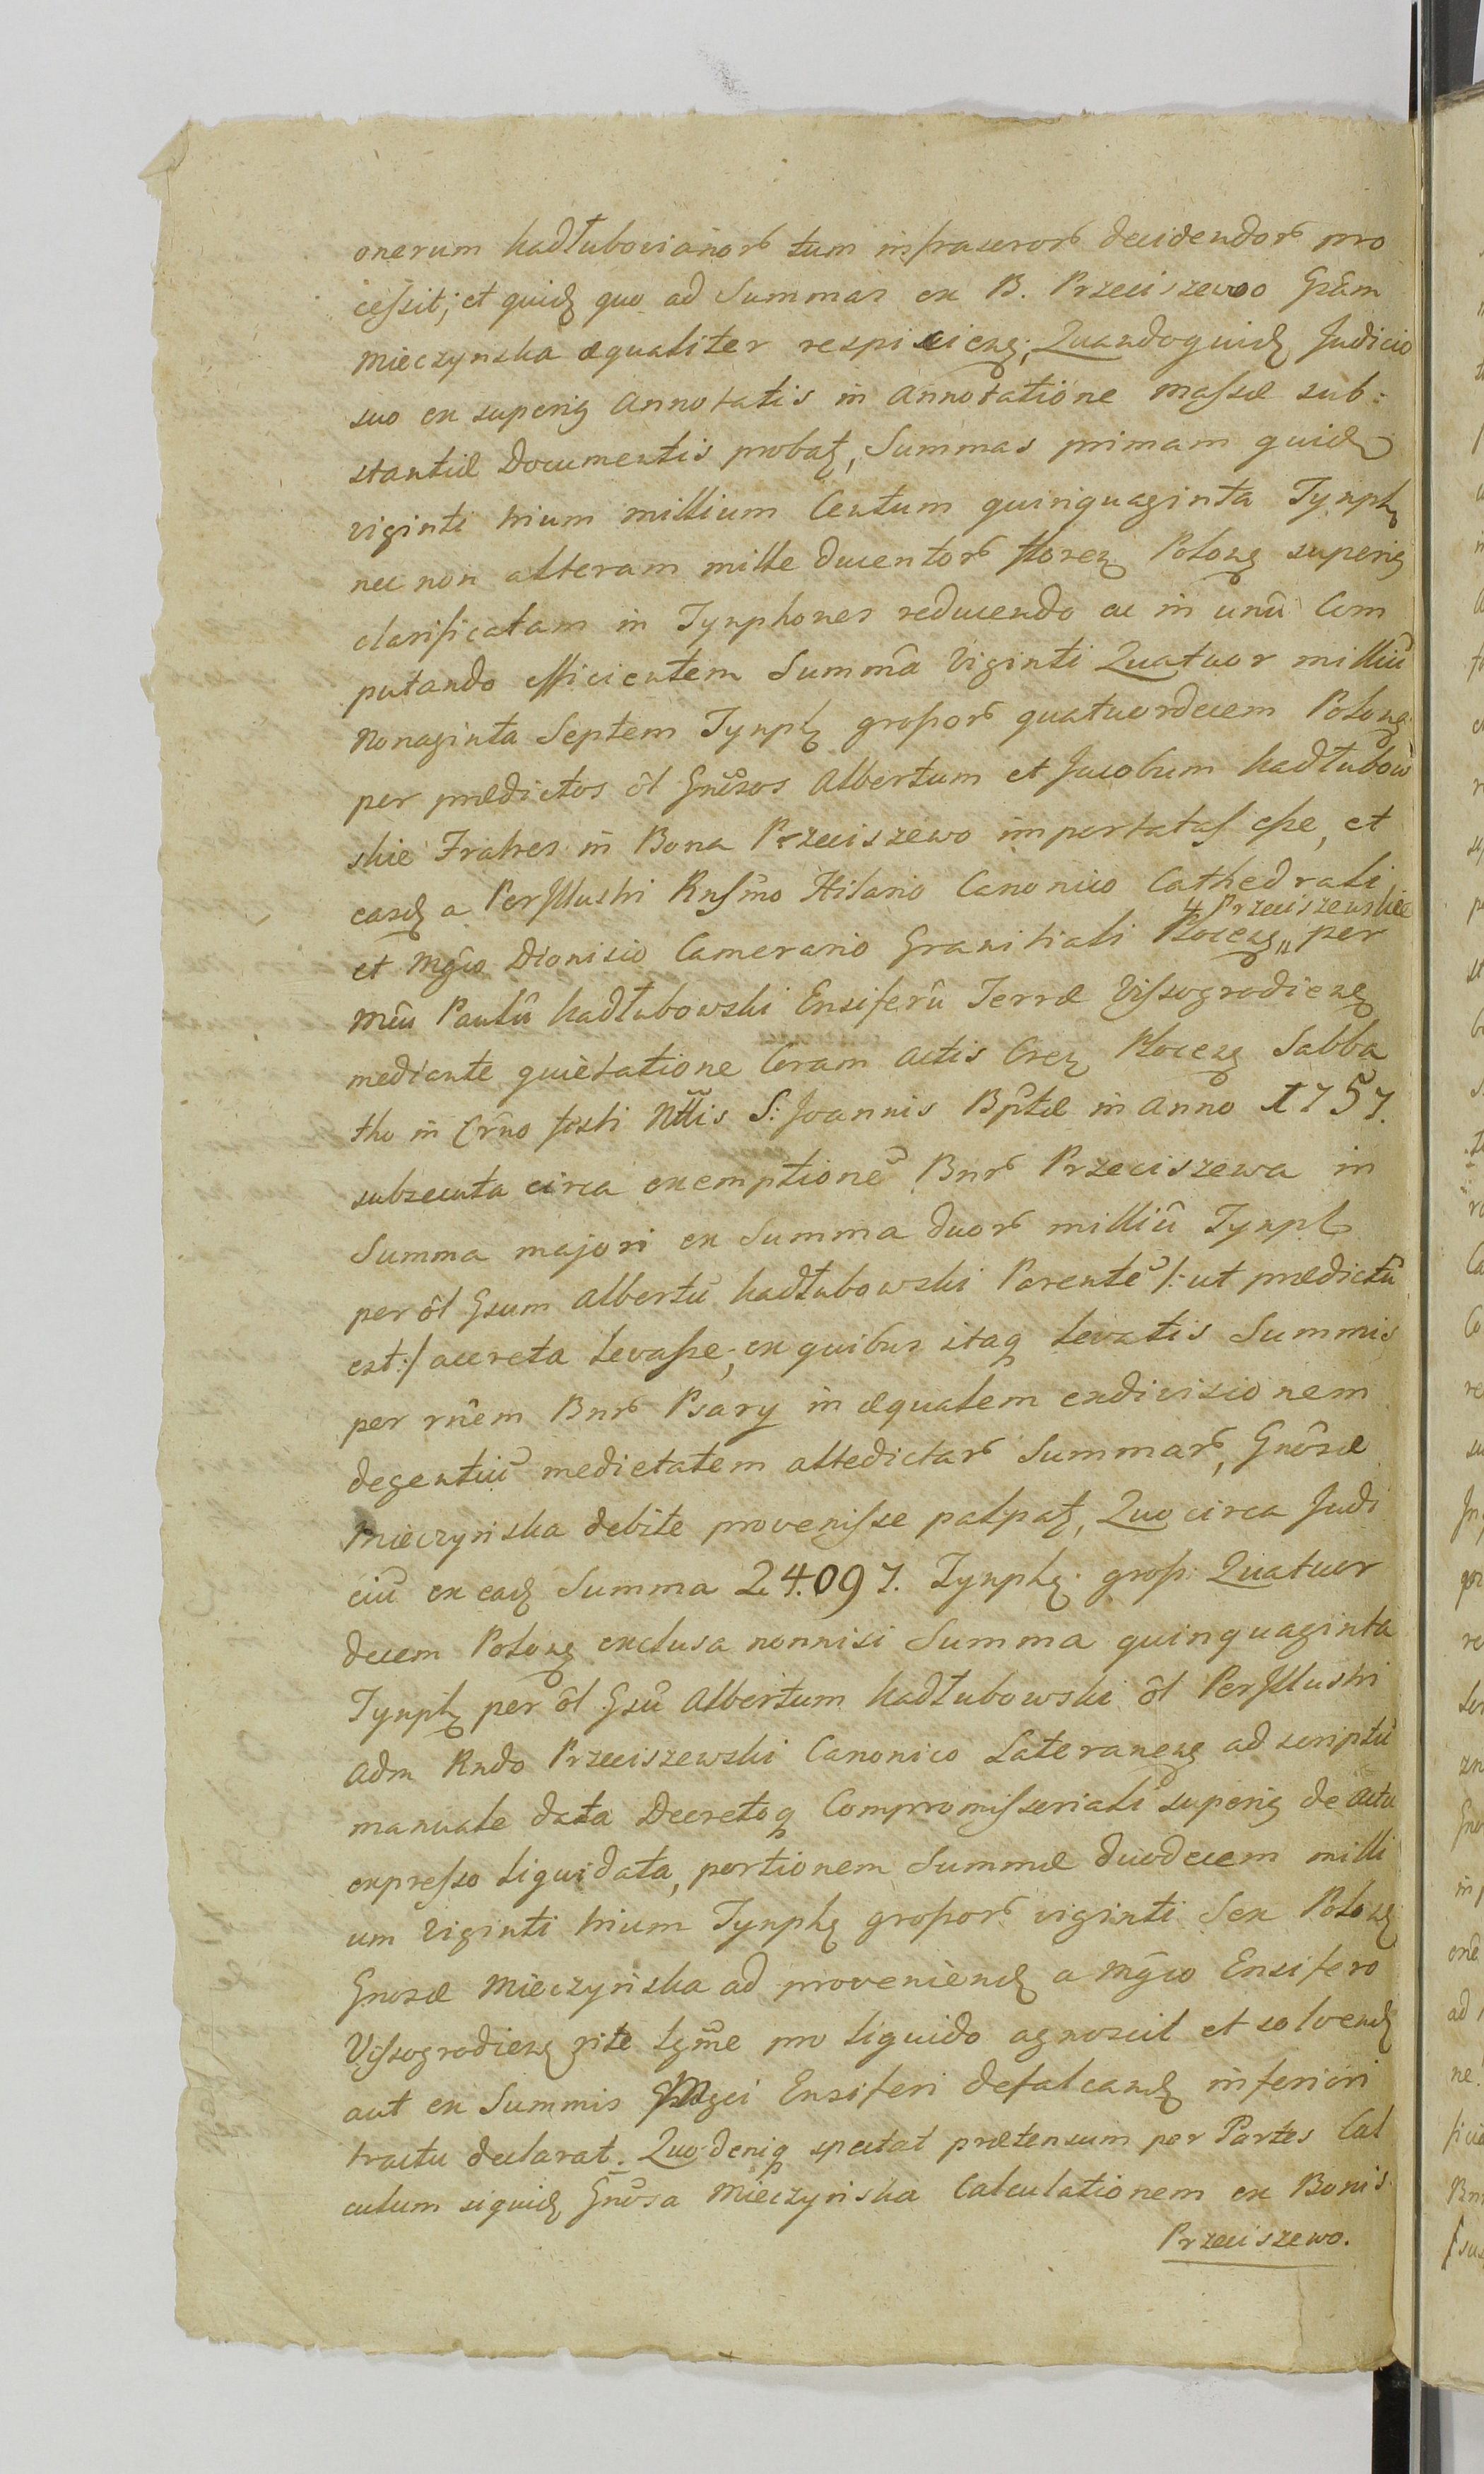 onerum kadłubovianor tum infraseror decidendor pro
cessit; et quidꝫ quo ad Summas ex B. Przeciszewo Gsam
Mieczynska æqualiter respicienꝫ; Quandoquidꝫ Judicio
suo ex superiꝫ annotatis in annotatione massæ sub:
stantiæ Documentis probatꝫ, Summas primam quidꝫ
viginti trium millium Centum quinquaginta Tynphꝫ
nec non alteram mille ducentor florenꝫ Polonꝫ superiꝫ
clarificatam in Tynphones reducendo ac in unû Com
putando efficientem Summâ Viginti Quatuor milliû
Nonaginta Septem Tynphꝫ grossor quatuordecem Polonꝫ
per prædictos ôl Gnosos Albertum et Jacobum kadłubow
skie Fratres in Bona Przeciszewo importatas esse, et
easdꝫ a PerJllustri Rnssmo Hilario Canonico Cathedrali
4 Przeciszewskie
et Mgco Dionisio Camerario Granitiali Plocenꝫ,, per
Mêu Paulû kadłubowski Ensiferû Terræ Vissogrodienꝫ
mediante quietatione Coram actis Crenꝫ Plocenꝫ Sabba
tho in Crno festi Nttis S: Joannis Bptæ in anno 1757.
subsecuta circa exemptionê Bnr Przeciszewa in
Summa majori ex Summa duor milliû Tynph
per ôl Gsum Albertû kadłubowski Parentê /: ut prædictû
est :/ accreta levasse; ex quibus itaq levatis Summis
per rnêm Bnr Psary in æqualem exdivisionem
degentiû medietatem altedictar Summar, Gnôsæ
Mieczyńska debite provenisse palpatꝫ, Quocirca Judi
ciû ex eadꝫ Summa 24.097. Tynphꝫ gross: Quatuor
decem Polonꝫ exclusa nonnisi Summa quinquaginta
Tynphꝫ per ôl Gsû Albertum kadłubowski ôl PerJllustri
adm Rndo Przeciszewski Canonico Lateranenꝫ ad scriptû
manuale data Decretoq Compromissoriali superiꝫ de actu
expresso liquidata, portionem Summæ duodecem milli
um viginti trium Tynphꝫ grossor viginti Sex Polonꝫ
Gnosæ Mieczyńska ad proveniendꝫ a Mgco Ensifero
Vissogrodienꝫ rite lgme pro liquido agnoscit et solvendꝫ
aut ex Summis Mgci Ensiferi defalcandꝫ inferiori
tractu declarat. Quo deniq spectat prætensum per Partes Cal
culum siquidꝫ Gnosa Mieczyńska Calculationem ex Bonis
Przeciszewo.